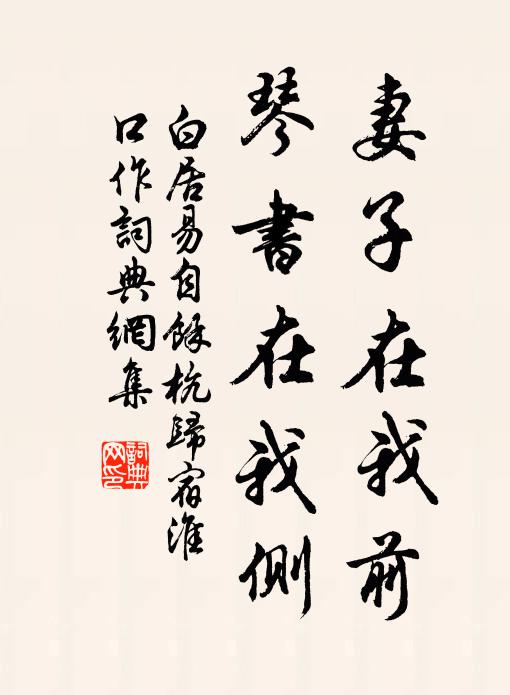 妻子在我前
琴書在我側
白居易自餘杭歸宿淮
口作詞典網集
詞典
网印